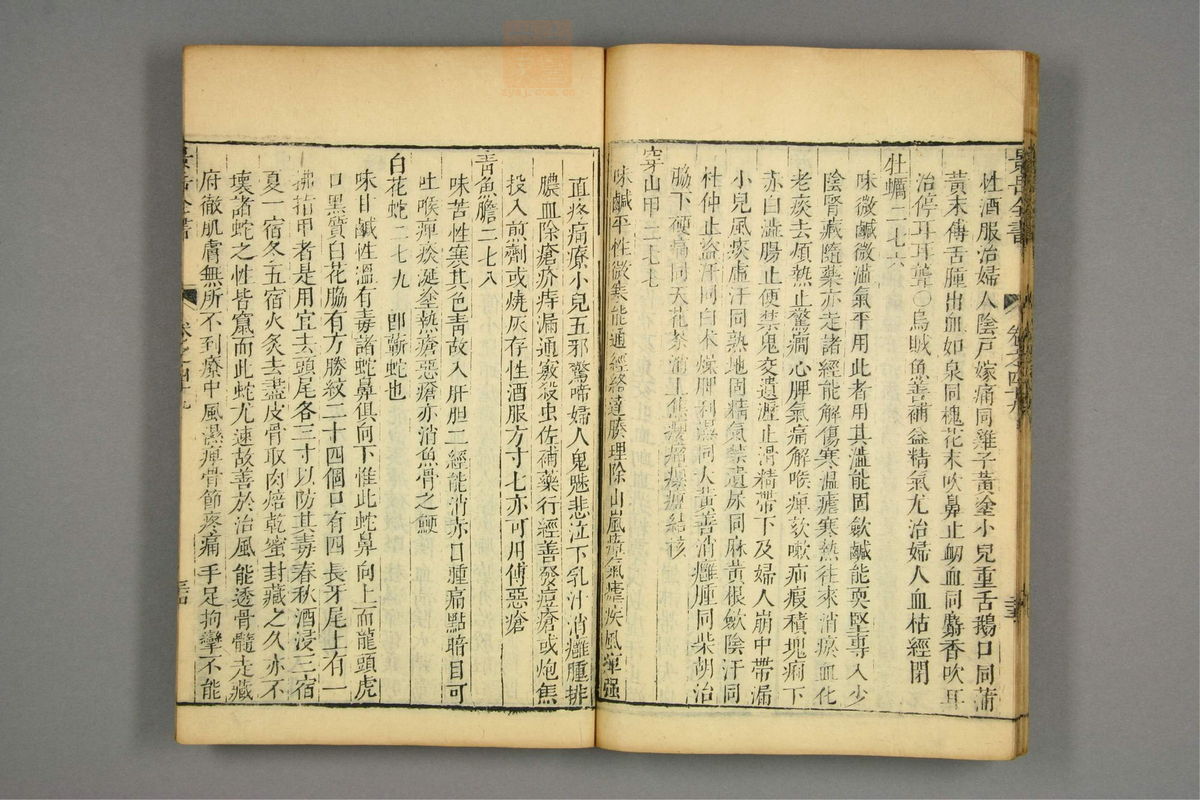 景岳全書
卷之四十九
性酒服治婦人陰戸嫁痛同雞子黃塗小兒重舌鵝口同蒲
黃末傅舌腫出血如泉同槐花末吹鼻止衂血同麝香吹耳
治停耳耳聾〇烏賊魚善補益精氣尤治婦人血枯經閉
牡蠣二七六
味微鹹微澁氣平用此者用其澁能固歛鹹能耎堅專入少
陰腎藏隨藥亦走諸經能解傷寒溫瘧寒熱往來消瘀血化
老痰去煩熱止驚癇心脾氣痛解喉痺欬嗽疝瘕積塊痢下
赤白澁腸止便禁鬼交遺瀝止滑精帶下及婦人崩中帶漏
小兒風痰虛汗同熟地固精氣禁遺尿同麻黃根歛陰汗同
杜仲止盜汗同白术燥脾利濕同大黃善消癰腫同柴胡治
脇下硬痛同天花茶消上焦癭瘤瘰癧結核
穿山甲二七七
味鹹平性微寒能通經絡達腠理除山嵐瘴氣瘧疾風痺强
直疼痛療小兒五邪驚啼婦人鬼魅悲泣下乳汁消癰腫排
膿血除瘡疥痔漏通竅殺虫佐補藥行經善發痘瘡或炮焦
投入煎劑或燒灰存性酒服方寸七亦可用傅惡瘡
靑魚膽二七八
味苦性寒其色靑故入肝胆二經能消赤口腫痛點暗目可
吐喉痺痰涎塗熱瘡惡瘡亦消魚骨之鯁
白花蛇二七九 卽蘄蛇也
味甘鹹性溫有毒諸蛇鼻俱向下惟此蛇鼻向上而龍頭虎
口黑質白花脇有方勝紋二十四個口有四長牙尾上有一
拂指甲者是用宜去頭尾各三寸以防其毒春秋酒浸三宿
夏一宿冬五宿火炙去盡皮骨取肉焙乾蜜封藏之久亦不
壞諸蛇之性皆竄而此蛇尤速故善於治風能透骨髓走藏
府徹肌膚無所不到療中風濕痺骨節疼痛手足拘攣不能
景岳全書
卷之四十九